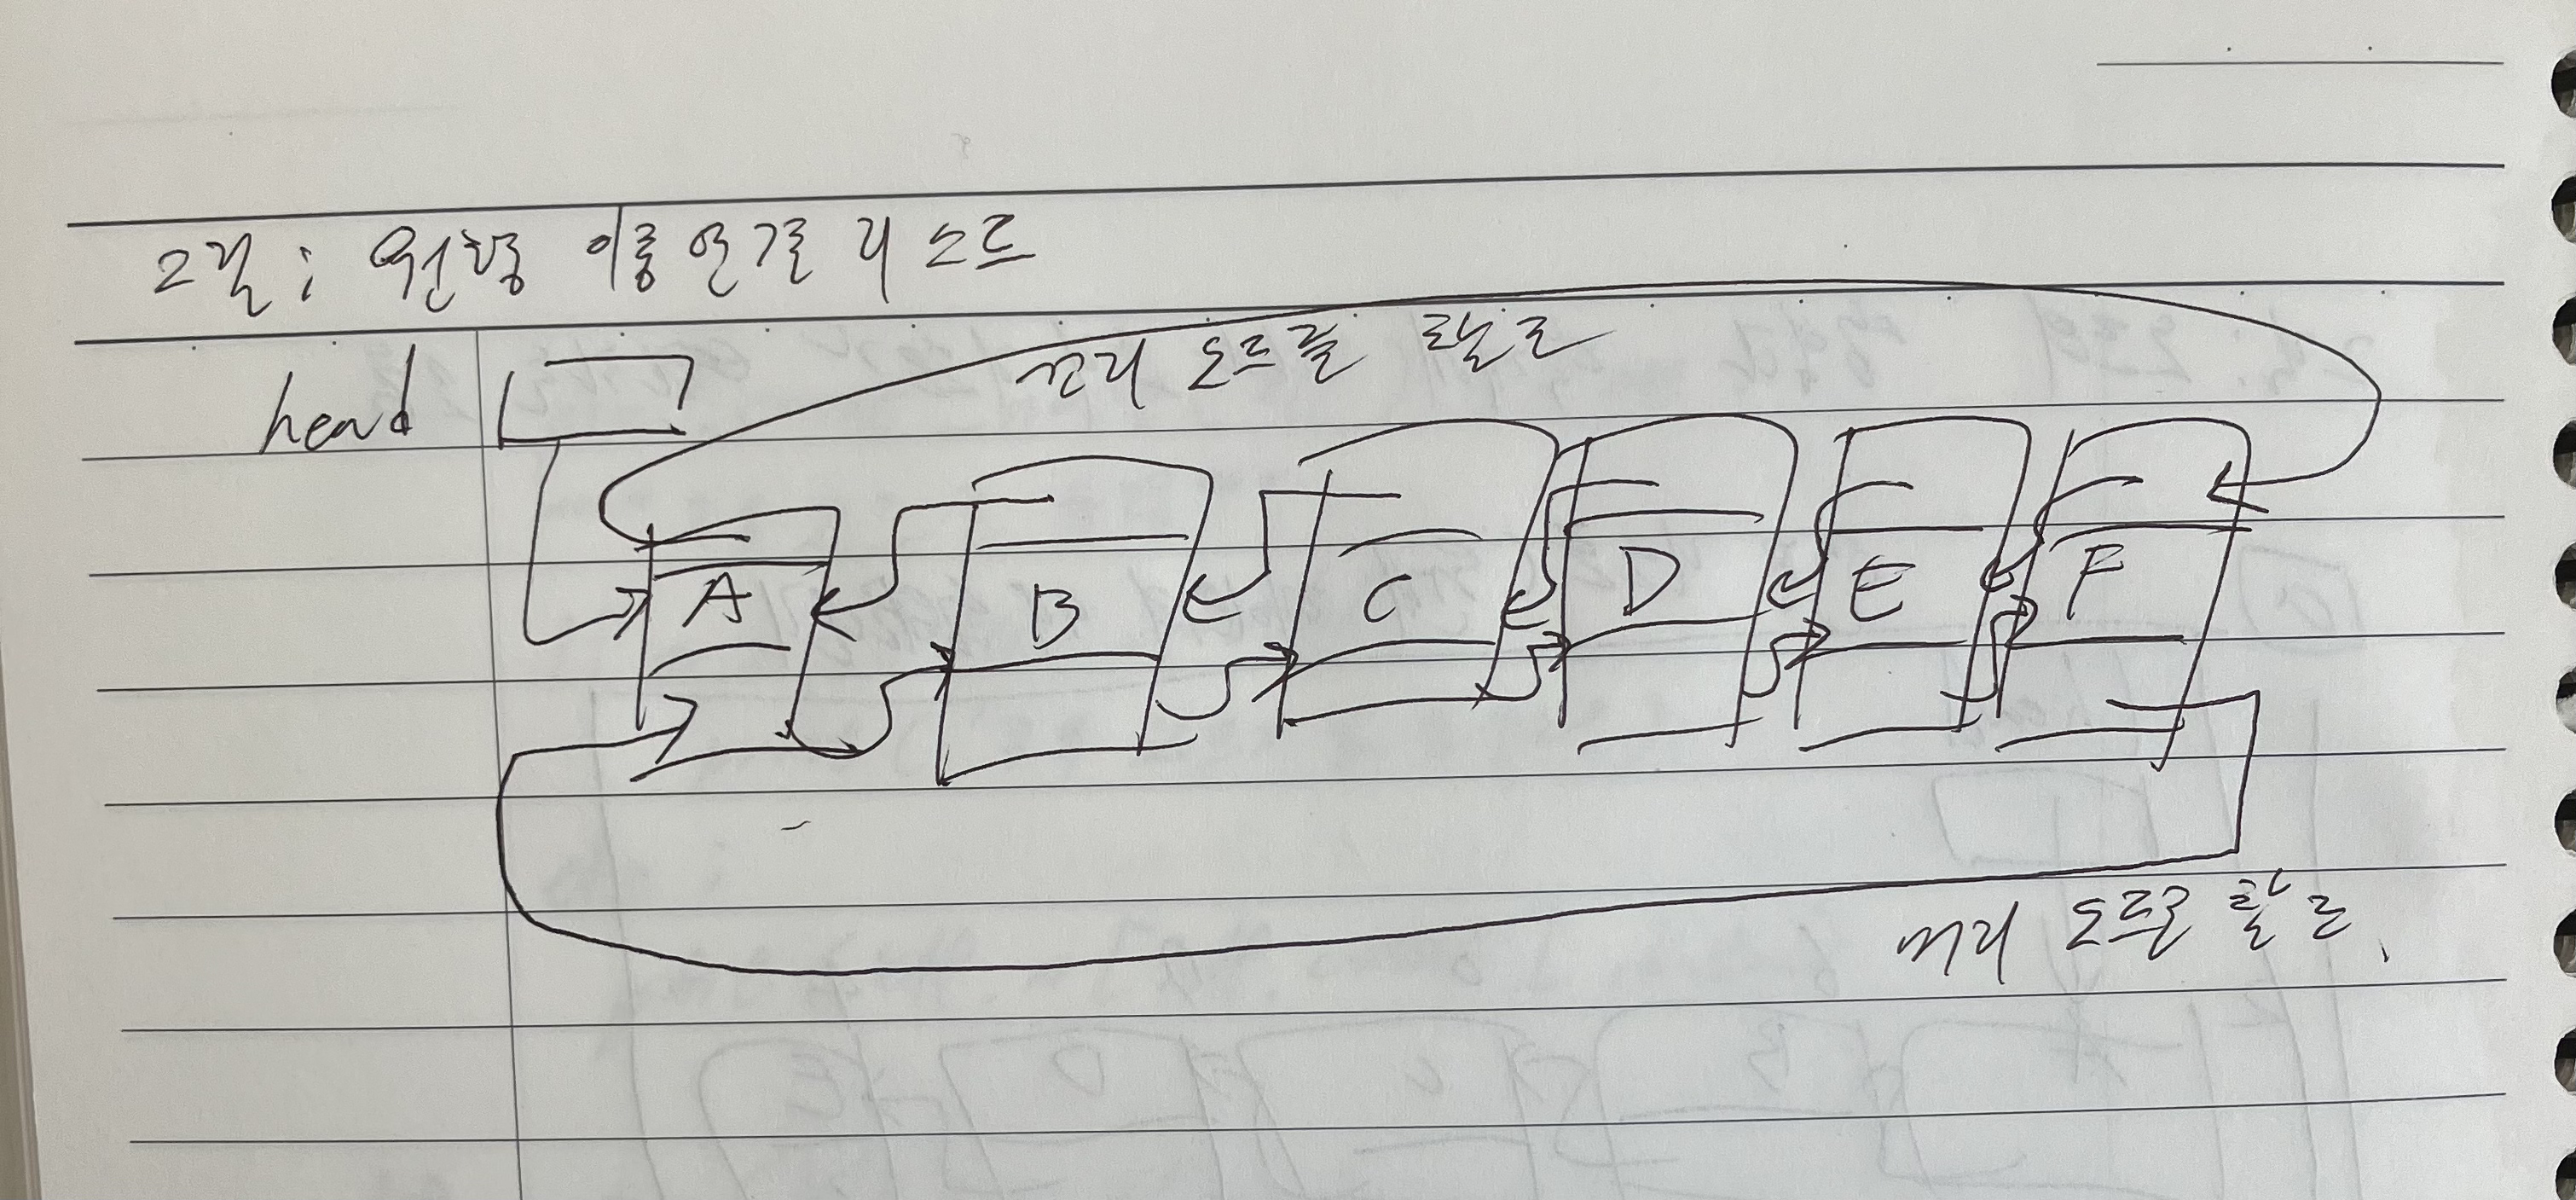 그림: 원형 이중 연결 리스트
head
꼬리 노드를 찾는
A B C D E F
머리 노드로 찾는